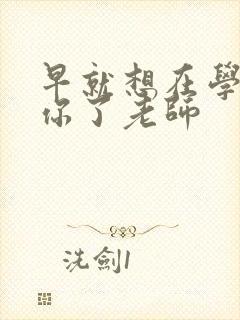 早就想在學
你了老師
洗劍1